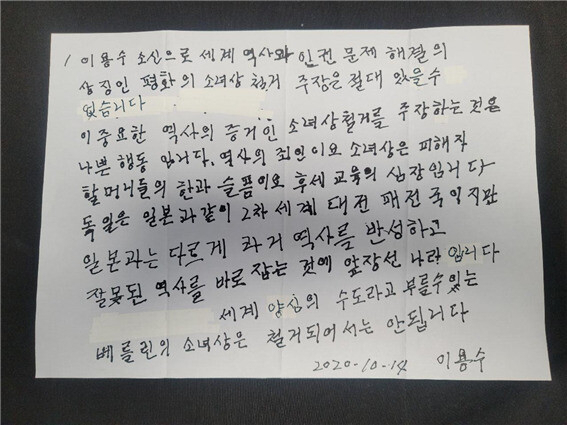 이용수 소신으로 세계 역사와 인권 문제 해결의
상징인 평화의 소녀상 철거 주장은 절대 있을수
없습니다
이 중요한 역사의 증거인 소녀상철거를 주장하는 것은
나쁜 행동 입니다, 역사의 죄인이요 소녀상은 피해자
할머니들의 한과 슬픔이요 후세 교육의 심장입니다
독일은 일본과같이 2차세계 대전 패전국 이지만
일본과는 다르게 과거 역사를 반성하고
잘못된 역사를 바로 잡는 것에 앞장선 나라 입니다
세계 양심의 수도라고 부를수있는
베를린의 소녀상은 철거되어서는 안됩니다
2020-10-14 이용수